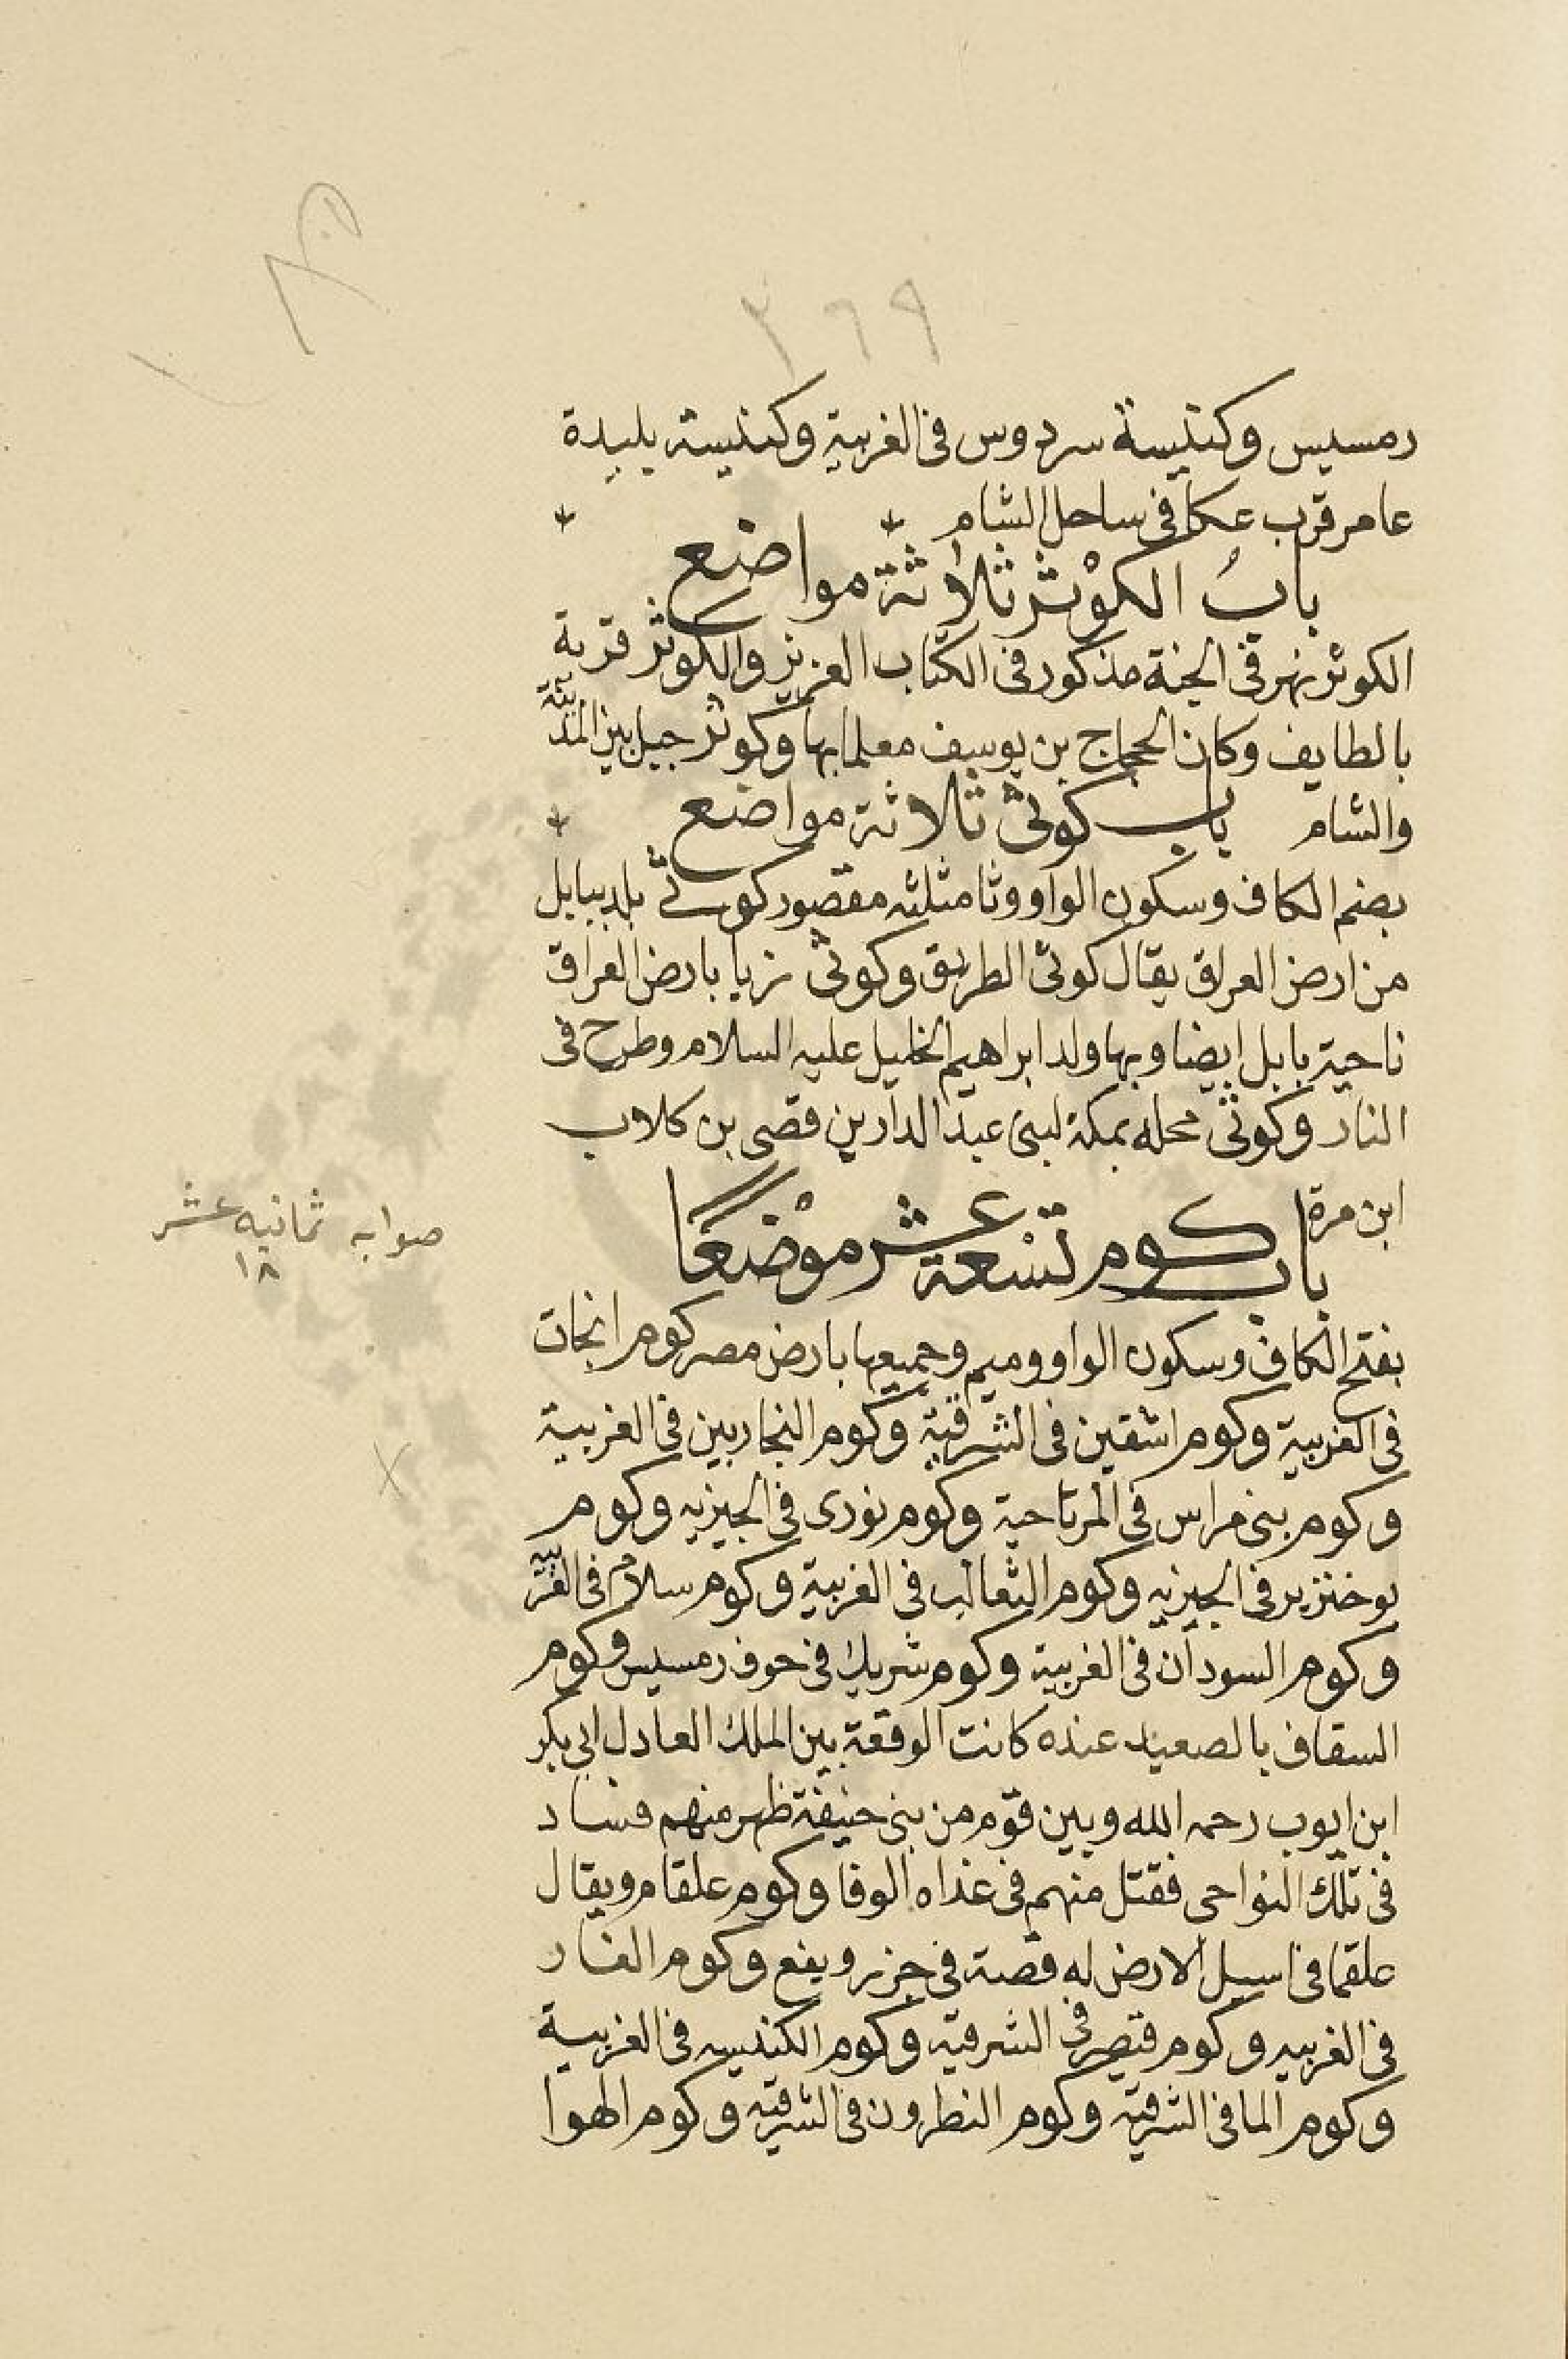 ٣٦٩
رمسيس وكنيسة سردوس في الغربية وكنيسة بليدة
عامر قرب عكا في ساحل الشام
بابُ الكوْثر ثلاثة مواضع
الكوثر نهر في الجنة مذكور في الكتاب العزيز والكوثر قرية
بالطايف وكان الحجاج بن يوسف معلما بها وكوثر جبل بين المدينة
والشام باب كوثى ثلاثة مواضع
بضم الكاف وسكون الواو وثا مثلثه مقصور كوثى بلد ببابل
من ارض العراق يقال كوثى الطريق وكوثى ربا بارض العراق
ناحية بابل ايضا وبها ولد ابراهيم الخليل عليه السلام وطرح في
النار وكوثى محله بمكة لبني عبد الدار بن قصى بن كلاب
ابن مرة
باب كوم تسْعة عشر موْضعًا
صوابه ثمانيه عشر
١٨
بفتح الكاف وسكون الواو وميم وجميعها بارض مصر كوم انجات
في الغربية وكوم اشقين في الشرقية وكوم النجاريين في الغربية
وكوم بني مراس في المرتاحية وكوم نورى في الجيزيه وكوم
بوخنزير في الجيزيه وكوم الثعالب في الغربية وكوم سلام في الغربيه
وكوم السودان في الغربية وكوم شريك في حوف رمسيس وكوم
السقاف بالصعيد عنده كانت الوقعة بين الملك العادل ابي بكر
ابن ايوب رحمه الله وبين قوم من بني حنيفة ظهر منهم فساد
في تلك النواحي فقتل منهم في غداه الوفا وكوم علقام ويقال
علقما في اسيل الارض له قصة في جزر ويفع وكوم الفار
في الغربيه وكوم قيصر في الشرقية وكوم الكنيسه في الغربية
وكوم الما في الشرقية وكوم النطرون في الشرقيه وكوم الهوا